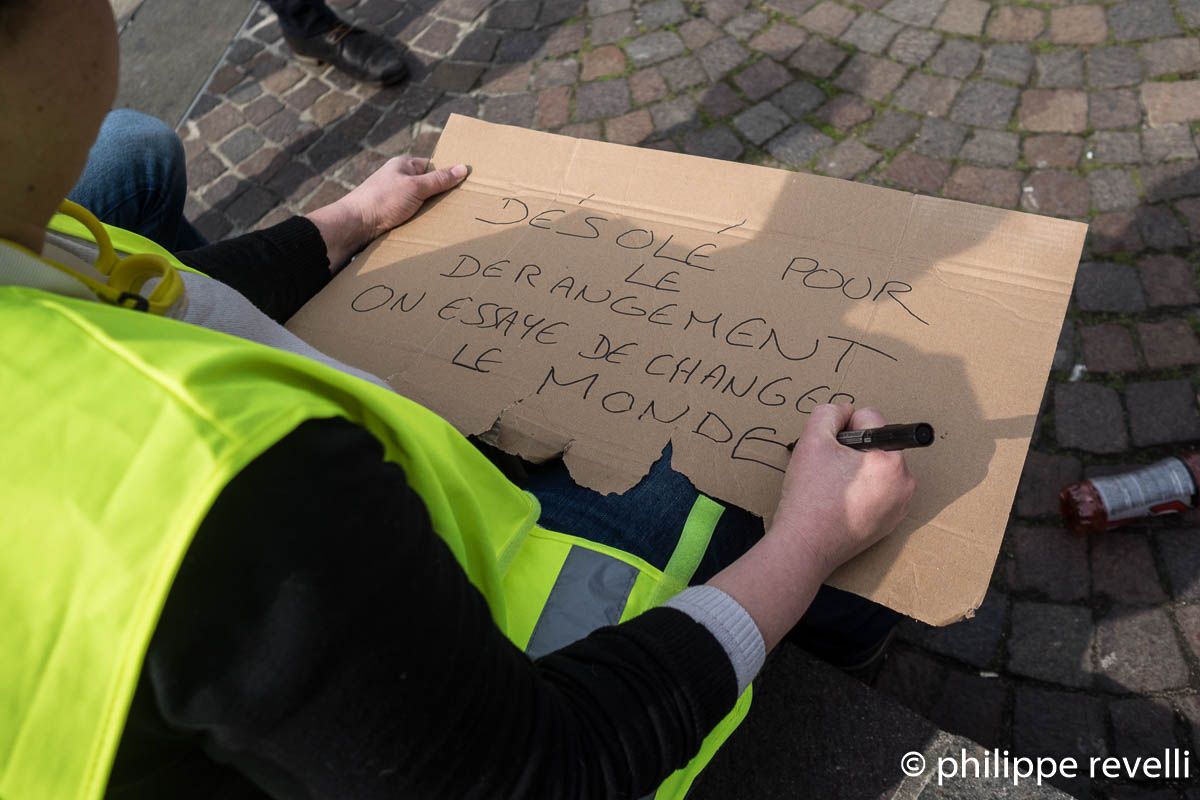 DÉSOLÉ POUR
LE
DERANGEMENT
ON ESSAYE DE CHANGER
LE MONDE
© philippe revelli